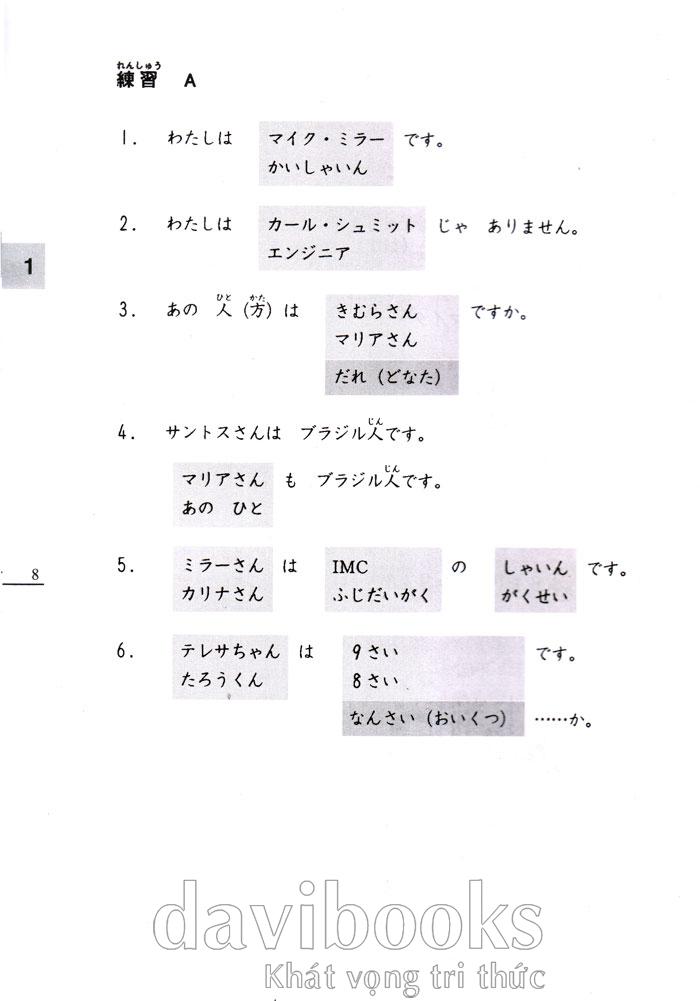 れんしゅう
練習 A
1. わたしは マイク・ミラー です。
かいしゃいん
2. わたしは カール・シュミット じゃ ありません。
エンジニア
1
ひと かた
3. あの 人(方)は きむらさん ですか。
マリアさん
だれ(どなた)
じん
4. サントスさんは ブラジル人です。
じん
マリアさん も ブラジル人です。
あの ひと
5. ミラーさん は IMC の しゃいん です。
カリナさん ふじだいがく がくせい
8
6. テレサちゃん は 9さい です。
たろうくん 8さい
なんさい(おいくつ) ……か。
davibooks
Khát vọng tri thức